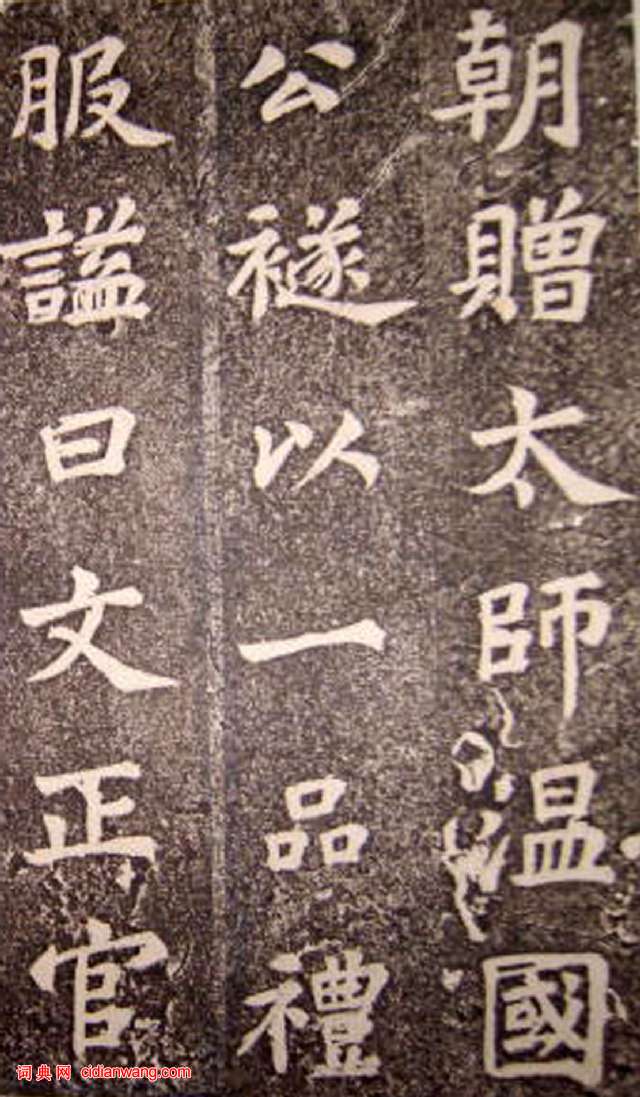 朝贈太師温國
公襚以一品禮
服謚曰文正官
词典网 cidianwang.com